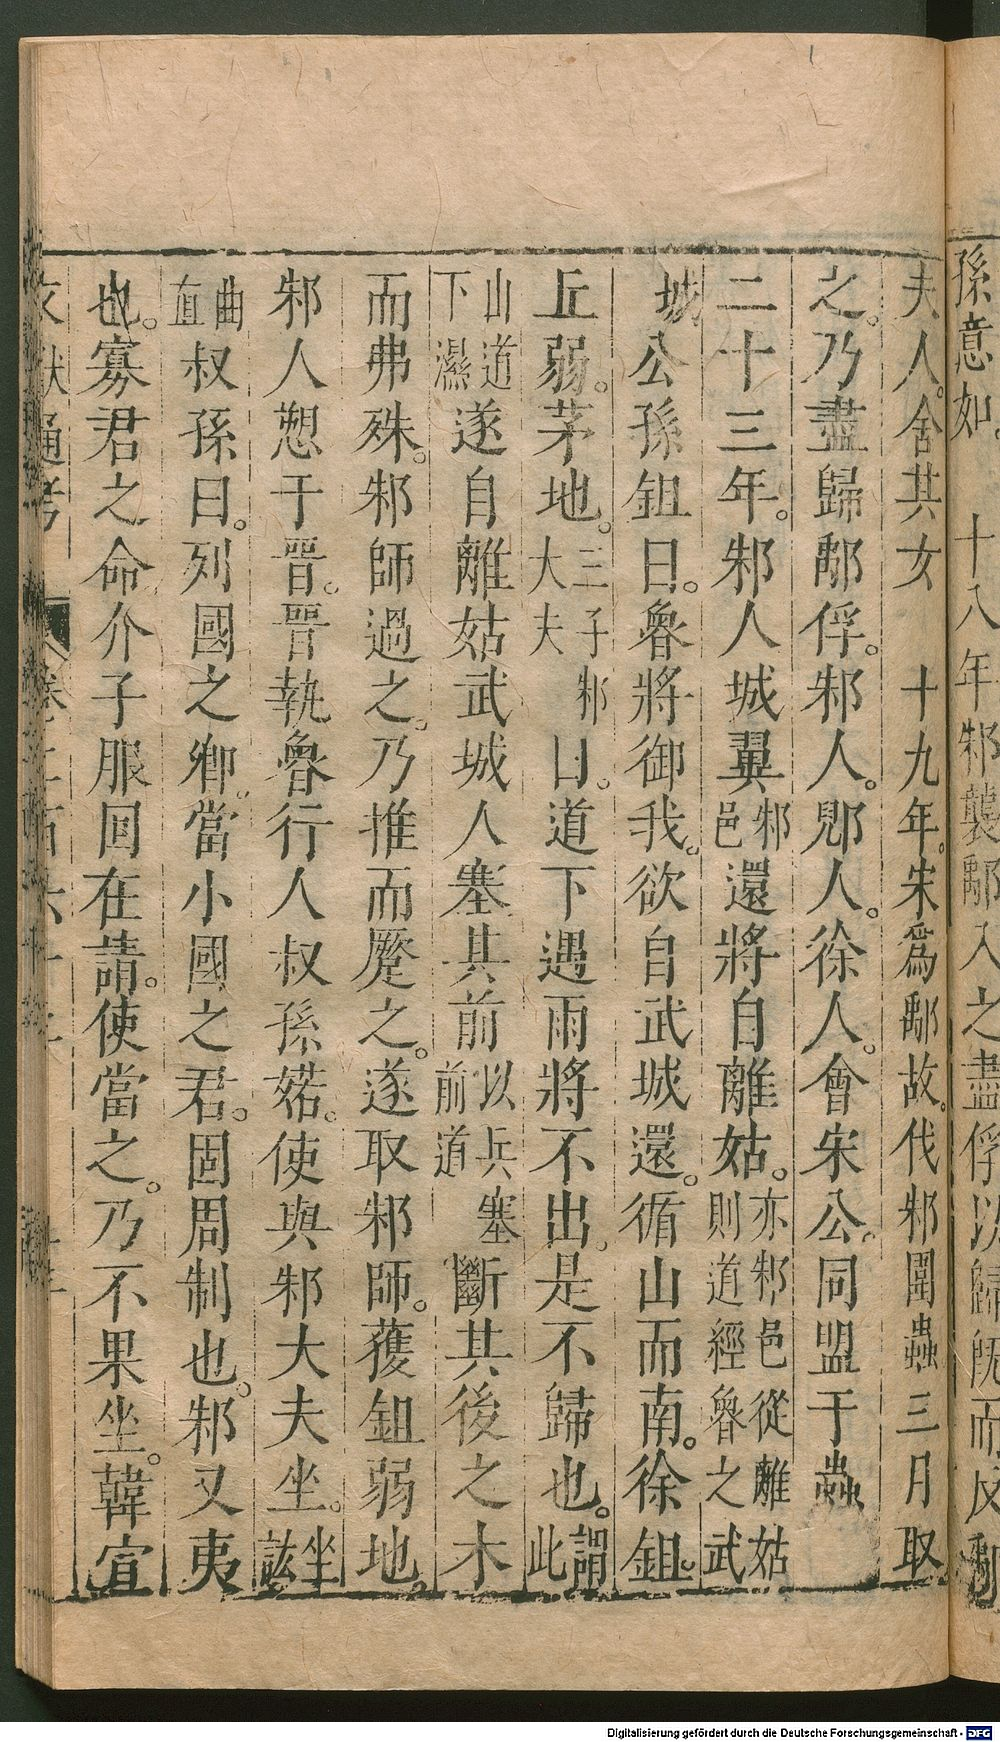 孫意如。　十八年邾襲鄅入之盡俘以歸旣而反鄅
夫人。舍其女　十九年。宋爲鄅故。伐邾圍蟲三月取
之。乃盡歸鄅俘。邾人。郳人。徐人。會宋公。同盟于蟲
二十三年。邾人城翼邾邑還將自離姑。亦邾邑從離姑則道經魯之武
城公孫鉏曰。魯將御我。欲自武城還。循山而南。徐鉏。
丘弱。茅地。三子邾大夫曰。道下遇雨將不出。是不歸也。謂此
山道下濕遂自離姑武城人塞其前以兵塞前道斷其後之木
而弗殊。邾師過之。乃推而蹷之。遂取邾師。獲鉏弱地。
邾人愬于晉。晉執魯行人叔孫婼。使與邾大夫坐。坐訟
曲直叔孫曰。列國之卿。當小國之君。固周制也。邾又夷
也。寡君之命介子服回在請。使當之。乃不果坐。韓宣
文獻通考
Digitalisierung gefördert durch die Deutsche Forschungsgemeinschaft - DFG